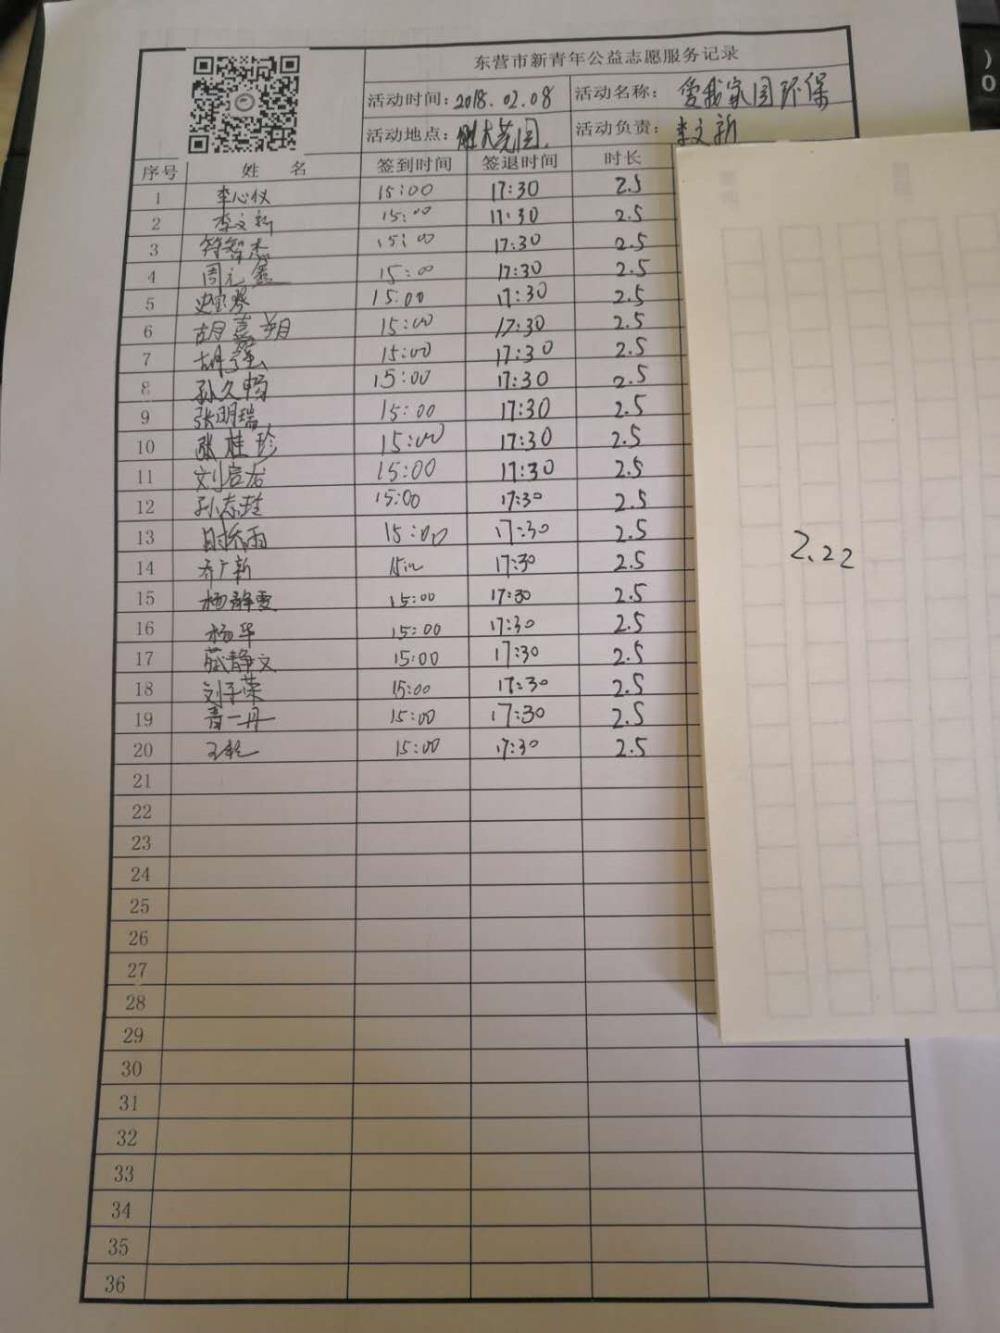 东营市新青年公益志愿服务记录
活动时间：2018.02.08 活动名称：爱我家园环保
活动地点： 活动负责：李文新
序号 姓 名 签到时间 签退时间 时长
1 李心仪 15:00 17:30 2.5
2 李文新 15:00 17:30 2.5
3 符智杰 15:00 17:30 2.5
4 周元鑫 15:00 17:30 2.5
5 15:00 17:30 2.5
6 胡嘉朔 15:00 17:30 2.5
7 15:00 17:30 2.5
8 孙久畅 15:00 17:30 2.5
9 张明瑞 15:00 17:30 2.5
10 张桂珍 15:00 17:30 2.5
11 15:00 17:30 2.5
12 孙志玲 15:00 17:30 2.5
13 15:00 17:30 2.5
14 17:30 2.5
15 杨静雯 15:00 17:30 2.5
16 杨华 15:00 17:30 2.5
17 15:00 17:30 2.5
18 刘子荣 15:00 17:30 2.5
19 15:00 17:30 2.5
20 15:00 17:30 2.5
21
22
23
24
25
26
27
28
29
30
31
32
33
34
35
36
2.22